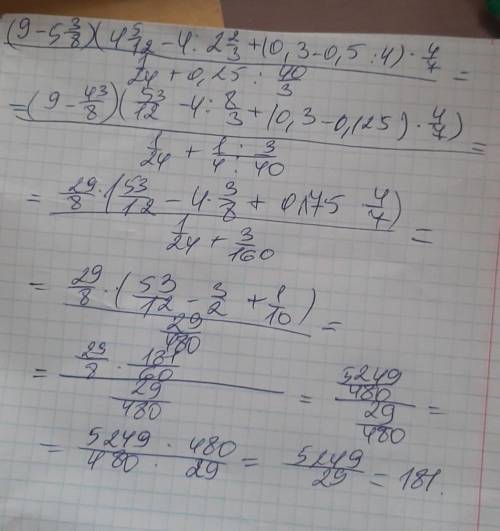 (9 - 5 3/8)(4 5/12 - 4 : 2 2/3 + (0,3 - 0,5 : 4) · 4/7
1/24 + 0,25 : 40/3 =
= (9 - 43/8)(53/12 - 4 : 8/3 + (0,3 - 0,125) · 4/7)
1/24 + 1/4 : 3/40 =
= 29/8 · (53/12 - 4 · 3/8 + 0,175 4/7)
1/24 + 3/160 =
= 29/8 · (53/12 - 3/2 + 1/10)
29/480 =
= 29/8 · 181/60 / 29/480 = 5249/480 / 29/480 =
= 5249/480 · 480/29 = 5249/29 = 181.